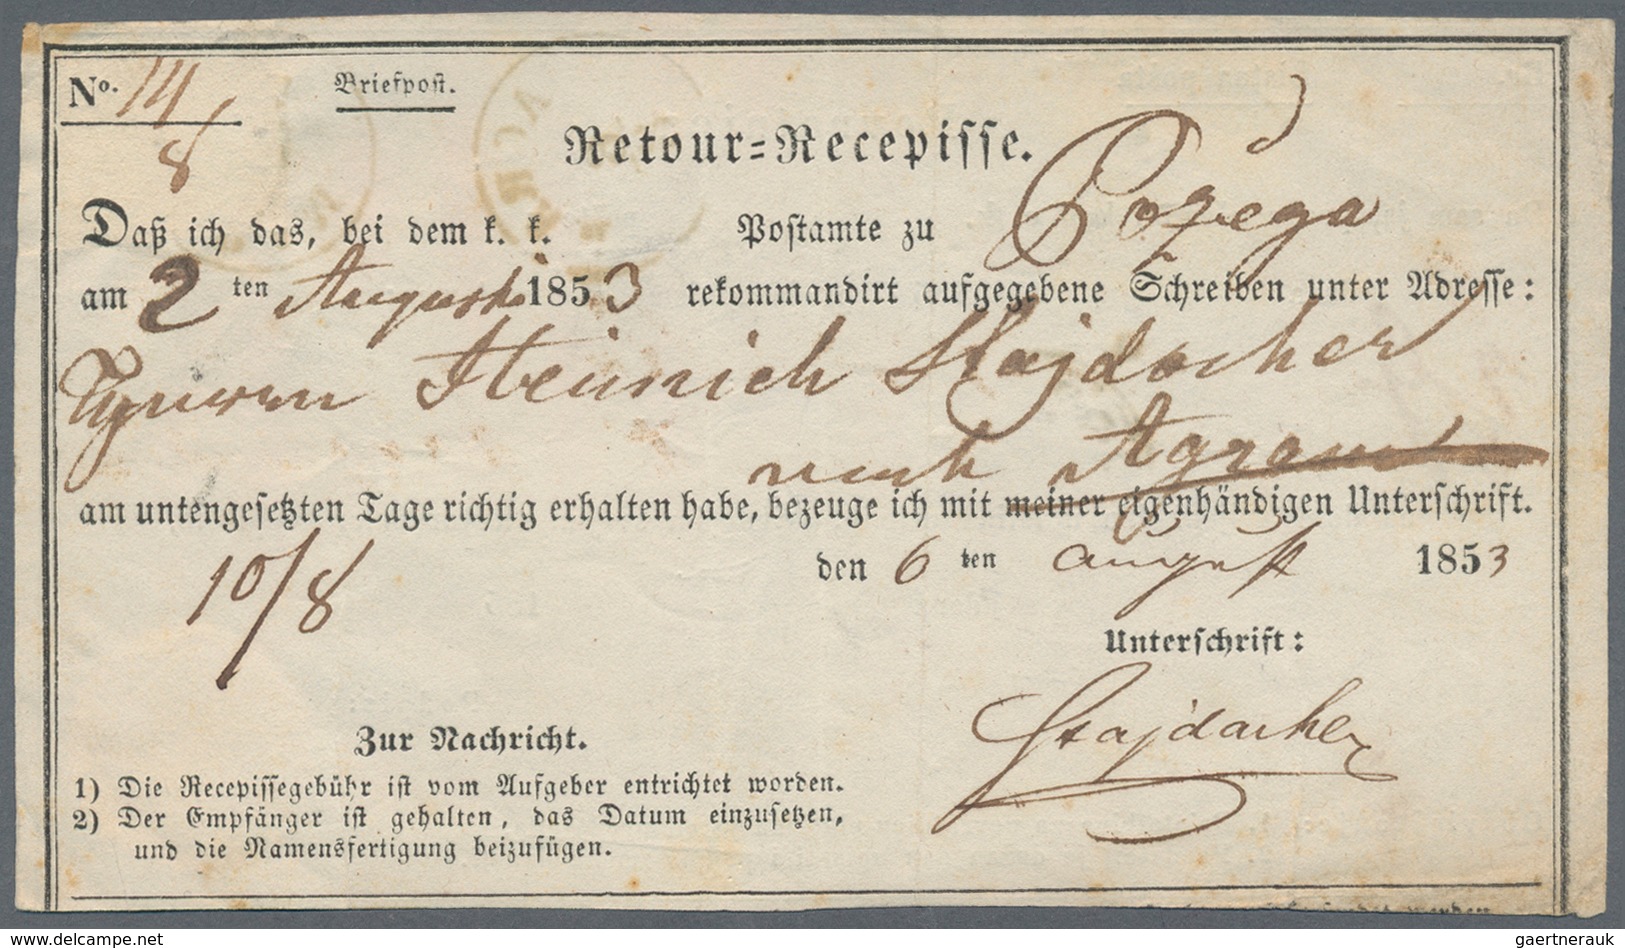 No. 14
Briefpost.
8
Retour=Recepisse.
Daß ich das, bei dem k. k. Postamte zu Pozega
am 2 ten August 1853 rekommandirt aufgegebene Schreiben unter Adresse:
Heinrich Stajdacher
nach Agram
am untengesetzten Tage richtig erhalten habe, bezeuge ich mit meiner eigenhändigen Unterschrift.
10/8
den 6 ten august 1853
Unterschrift:
Stajdacher
Zur Nachricht.
1) Die Recepissegebühr ist vom Aufgeber entrichtet worden.
2) Der Empfänger ist gehalten, das Datum einzusetzen,
und die Namensfertigung beizufügen.
www.delcampe.net
gaertnerauk